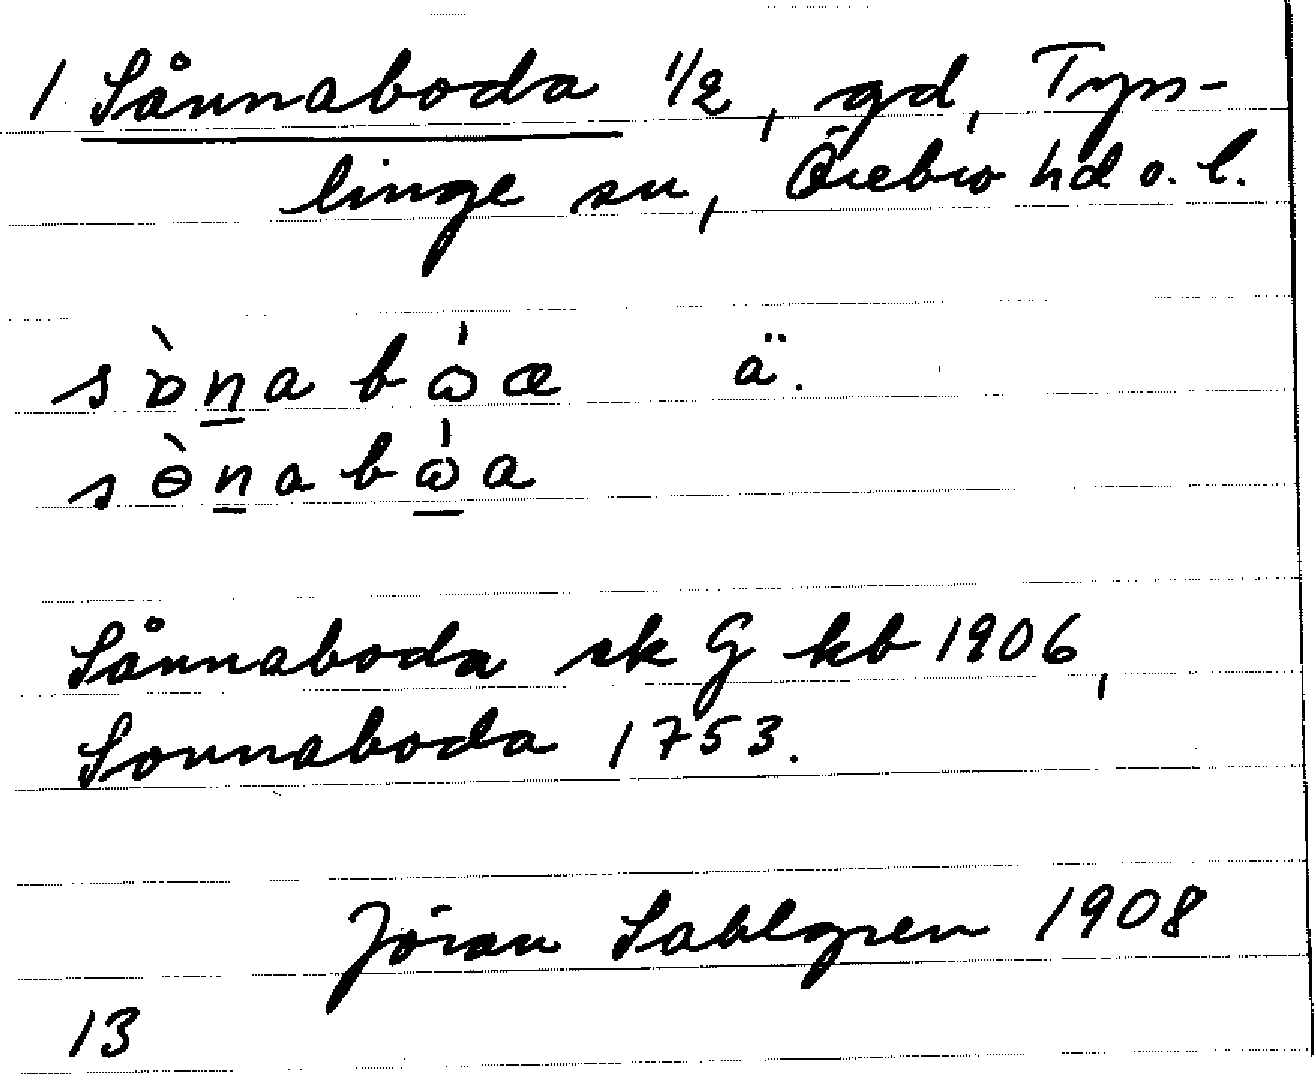 1 Sånnaboda 1/2, gd, Tys-
linge sn, Örebro hd o. l.
sɒ̀n̲a bɷ́æ ä.
sɵ̀n̲abɷ̲́a
Sånnaboda sk G kb 1906,
Sonnaboda 1753.
Jöran Sahlgren 1908
13